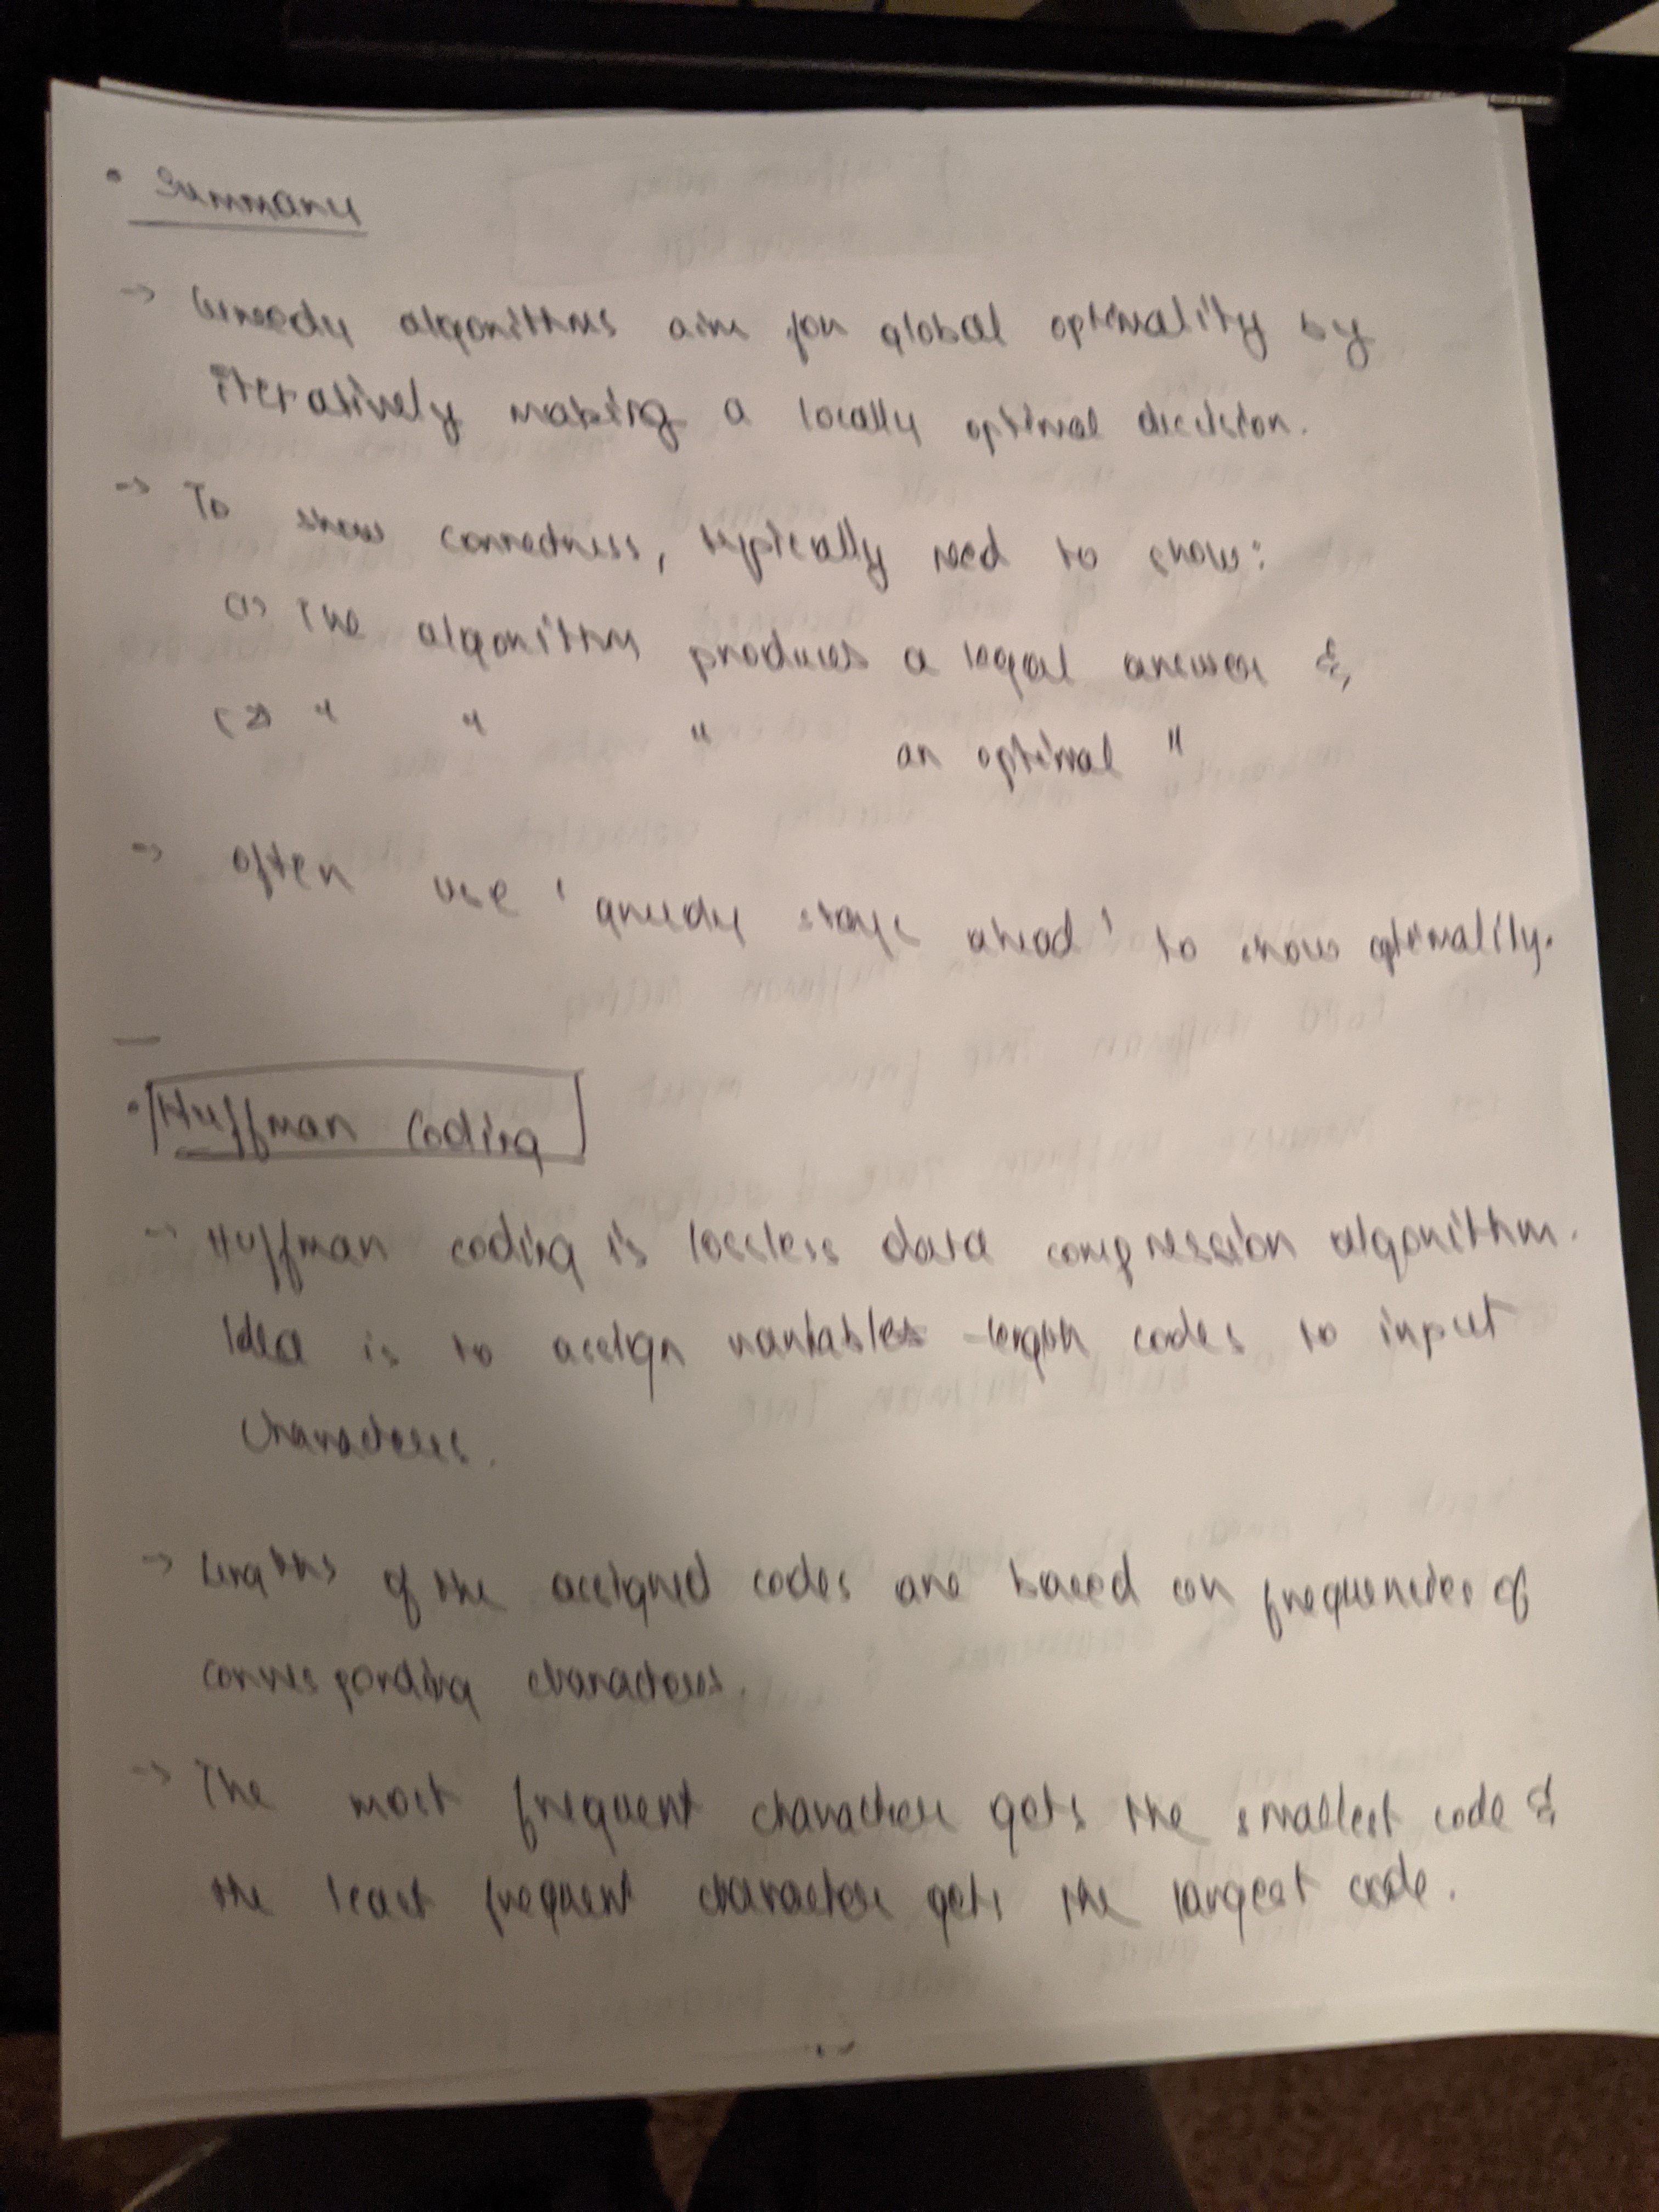 • Summary
→ Greedy algorithms aim for global optimality by
iteratively making a locally optimal decision.
→ To show correctness, typically need to show:
(1) The algorithm produces a legal answer &,
(2) " " " an optimal "
→ Often use 'greedy stays ahead' to show optimality.
—
• Huffman Coding
→ Huffman coding is lossless data compression algorithm.
Idea is to assign variables-length codes to input
characters.
→ Lengths of the assigned codes are based on frequencies of
corresponding characters.
→ The most frequent character gets the smallest code &
the least frequent character gets the largest code.